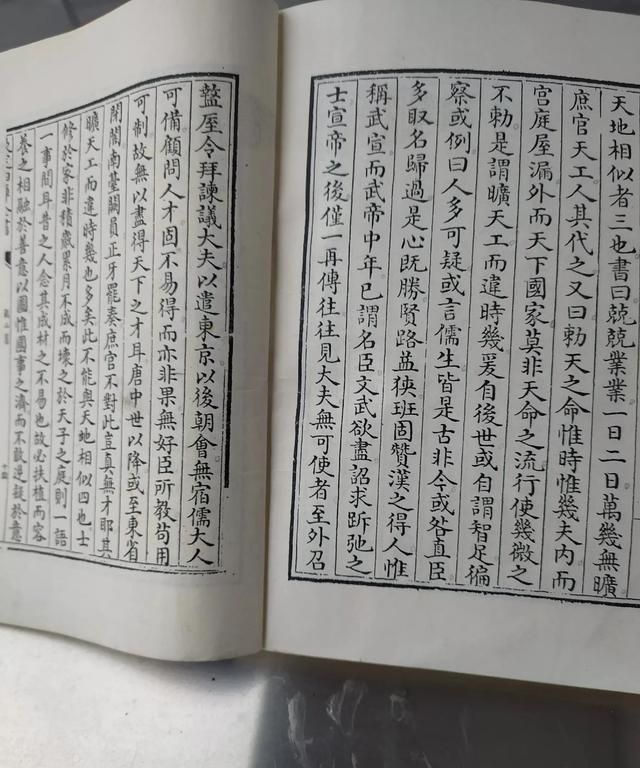 天地相似者三也書曰兢兢業業一日二日萬幾無曠
庶官天工人其代之又曰勑天之命惟時惟幾夫內而
宮庭屋漏外而天下國家莫非天命之流行使幾微之
不勑是謂曠天工而違時幾爰自後世或自謂智足徧
察或例曰人多可疑或言儒生皆是古非今或咎直臣
多取名歸過是心既勝賢路益狹班固贊漢之得人惟
稱武宣而武帝中年已謂名臣文武欲盡詔求跅弛之
士宣帝之後僅一再傳往往見大夫無可使者至外召
盩厔令拜諫議大夫以遣東京以後朝會無宿儒大人
可備顧問人才固不易得而亦非果無好臣所教苟用
可制故無以盡得天下之才耳唐中世以降或至東省
閉闔南臺闕員正牙罷奏庶官不對此豈真無才耶其
曠天工而違時幾也多矣此不能與天地相似四也士
修於家非積歲累月不成而壞之於天子之庭則一語
一事間耳昔之人念其成材之不易也故必扶植而容
養之相融於善意以圖惟國事之濟而不敢逆疑於意